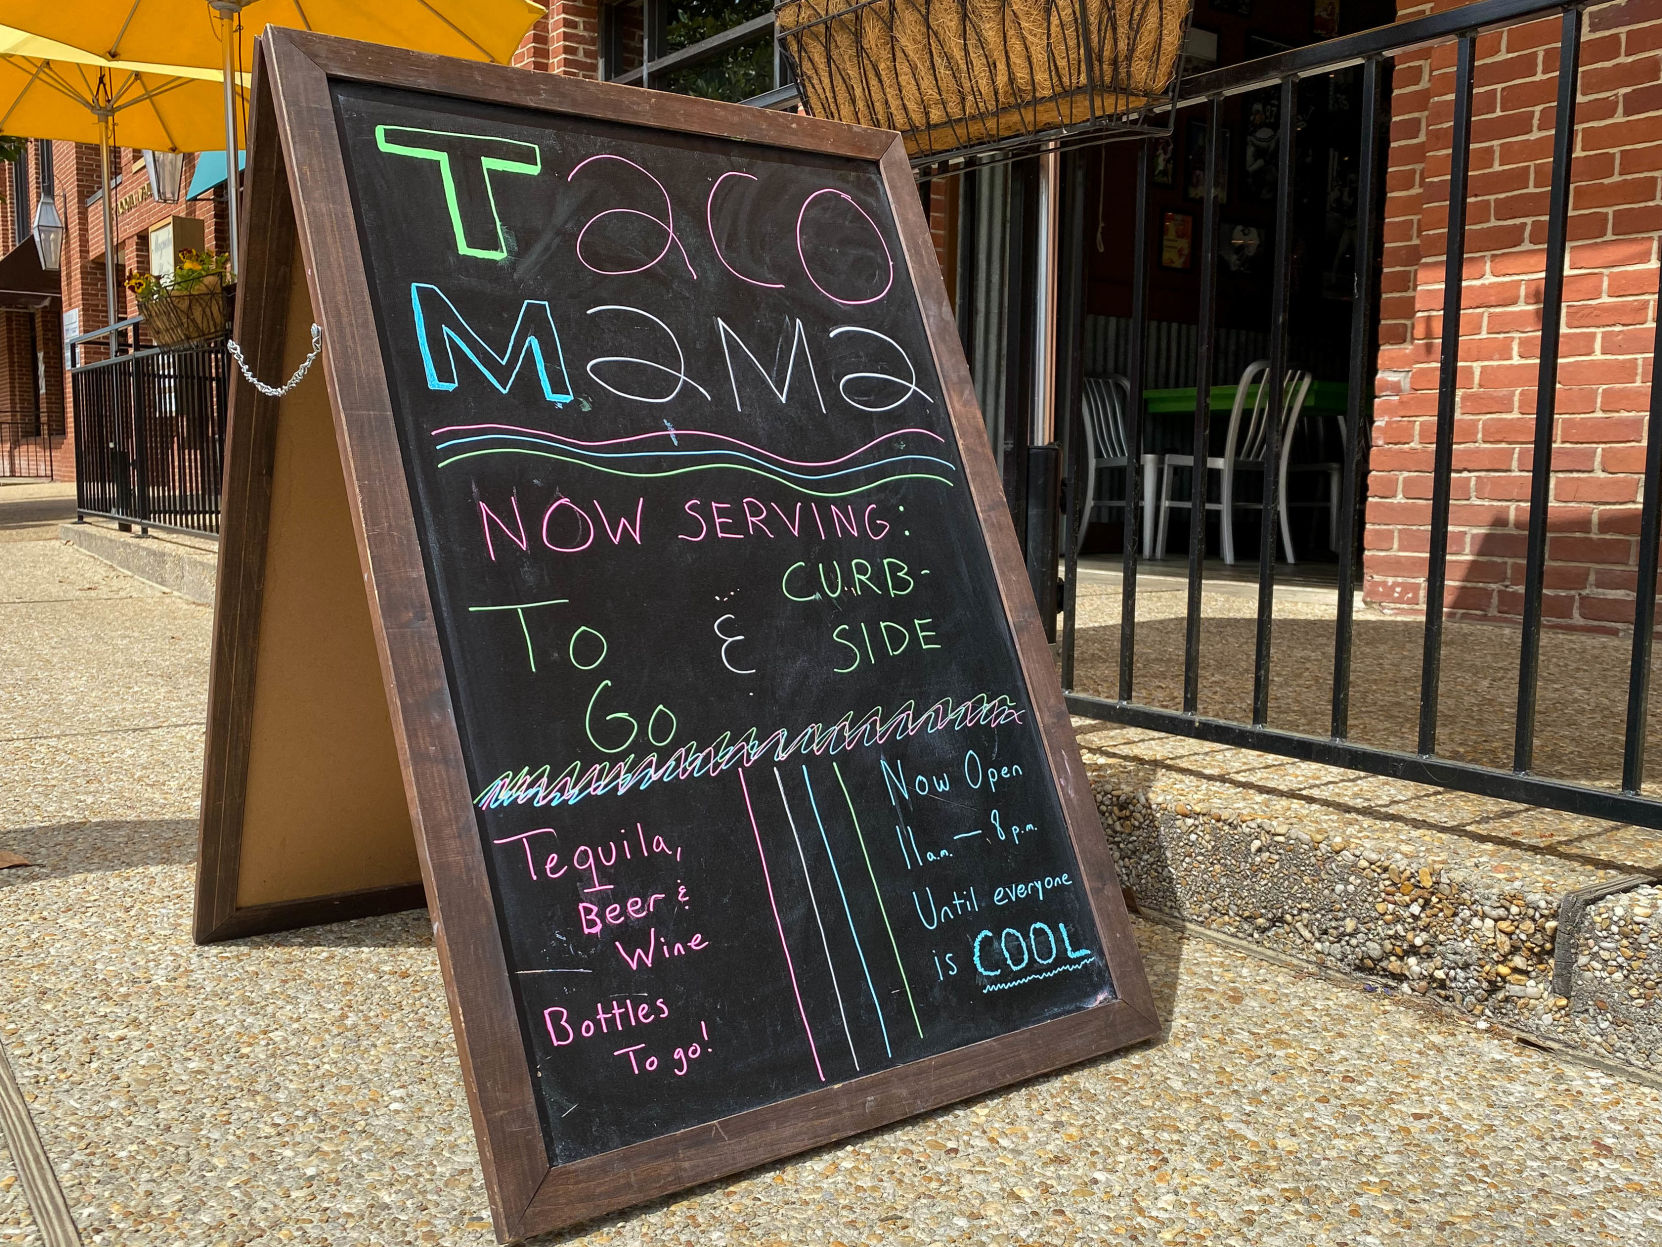 Taco
Mama
NOW SERVING:
To
Go
&
CURB-
SIDE
Tequila,
Beer &
Wine
Bottles
To go!
Now Open
11a.m. – 8 p.m.
Until everyone
is COOL